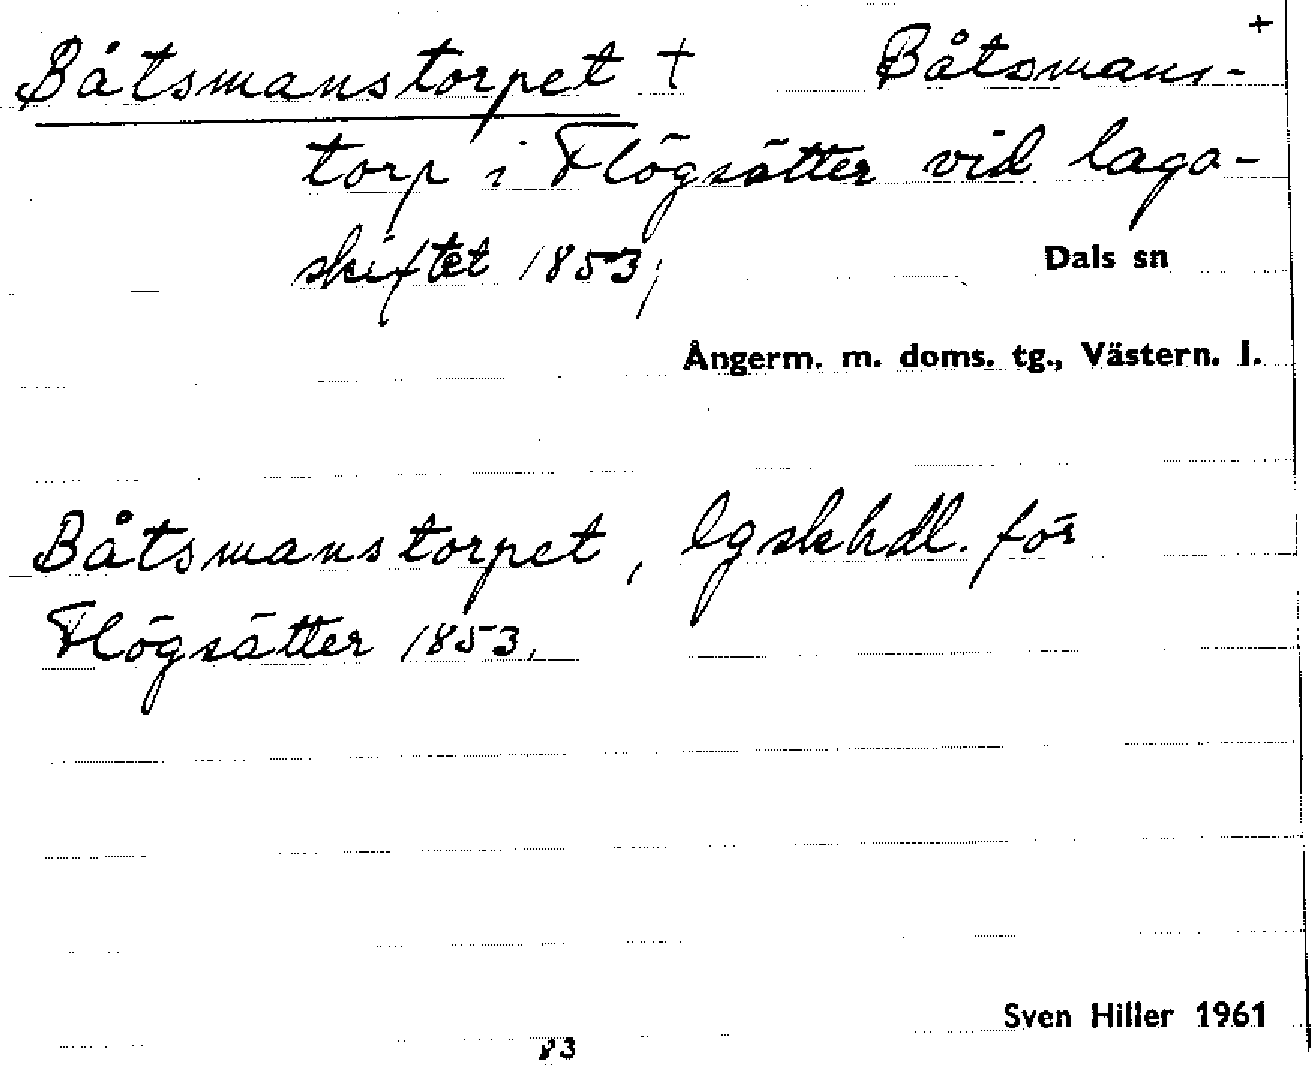 +
Båtsmanstorpet + Båtsmans-
torp i Flögsätter vid laga-
skiftet 1853;
Dals sn
Ångerm. m. doms. tg., Västern. l.
Båtsmanstorpet, lgskhdl. för
Flögsätter 1853.
Sven Hiller 1961
83